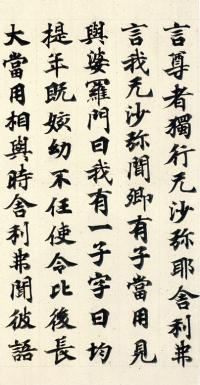 言尊者獨行无沙弥耶舍利弗
言我无沙弥聞卿有子當用見
與婆羅門曰我有一子字曰均
提年既姟幼不任使令比後長
大當用相與時舍利弗聞彼語